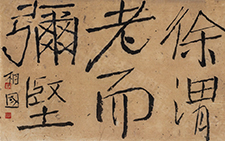 徐渭
老而
彌堅
相國